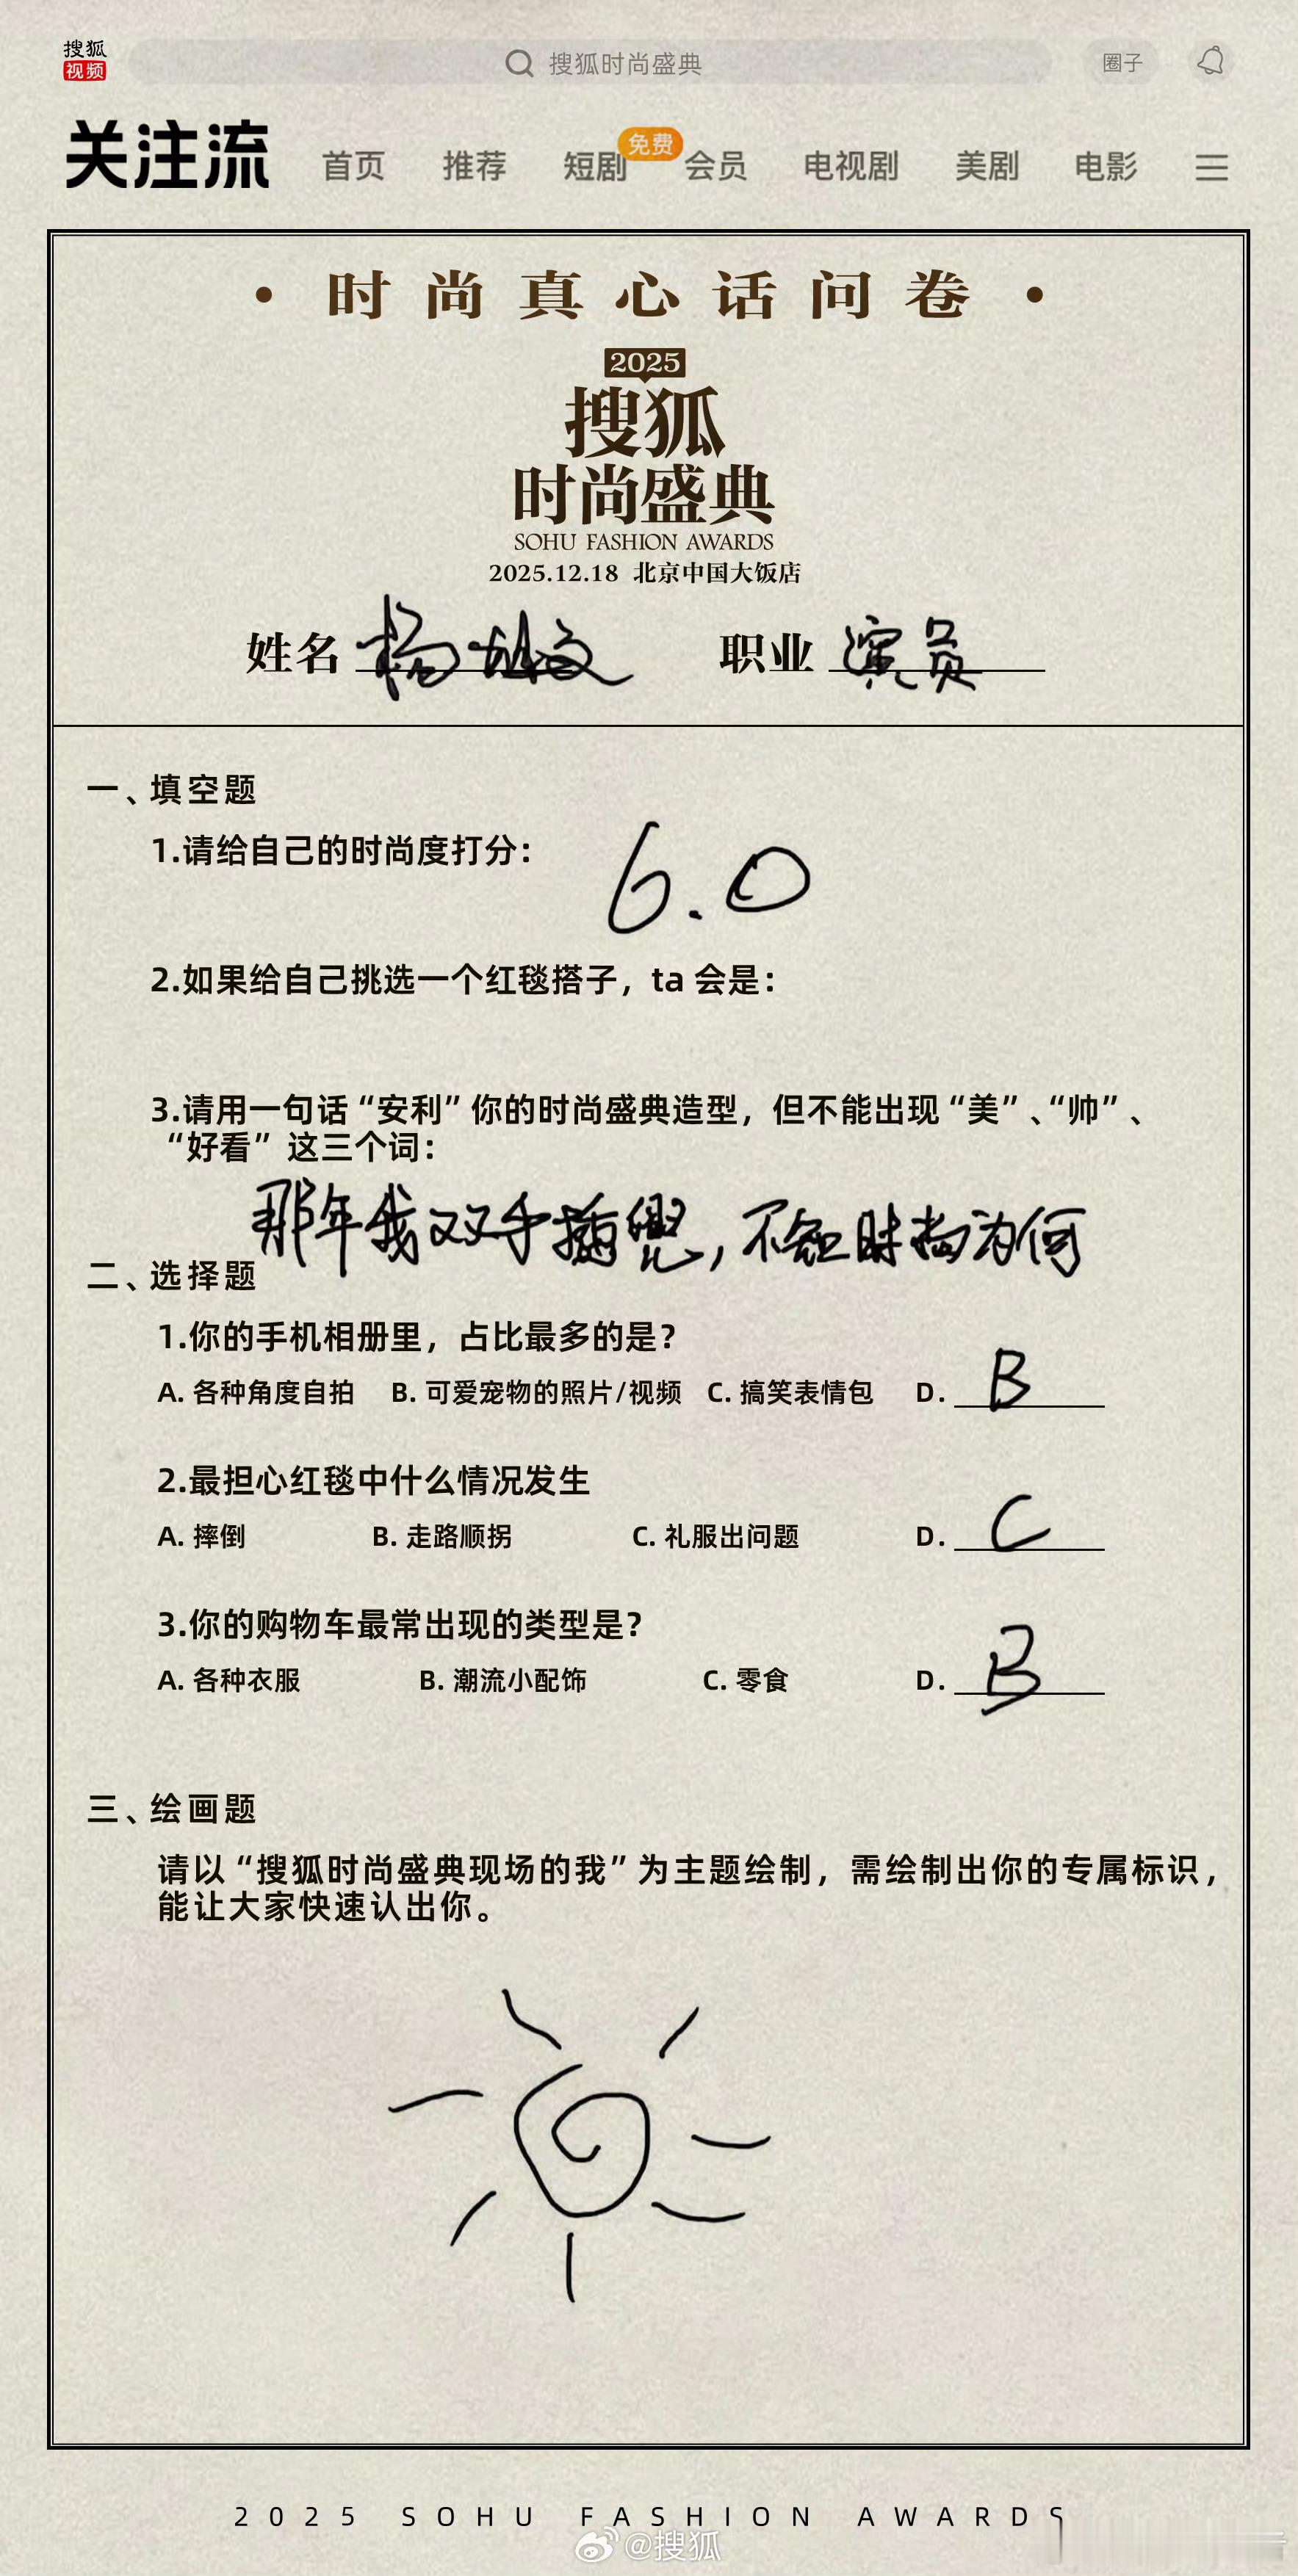 搜狐
视频
搜狐时尚盛典
圈子
关注流 首页 推荐 短剧 免费 会员 电视剧 美剧 电影
• 时尚真心话问卷 •
2025
搜狐
时尚盛典
SOHU FASHION AWARDS
2025.12.18 北京中国大饭店
姓名 杨 职业 演员
一、填空题
1.请给自己的时尚度打分： 6.0
2.如果给自己挑选一个红毯搭子，ta 会是：
3.请用一句话“安利”你的时尚盛典造型，但不能出现“美”、“帅”、
“好看” 这三个词：
那年我双手插兜，不知时尚为何
二、选择题
1.你的手机相册里，占比最多的是？
A. 各种角度自拍 B. 可爱宠物的照片/视频 C. 搞笑表情包 D. B
2.最担心红毯中什么情况发生
A. 摔倒 B. 走路顺拐 C. 礼服出问题 D. C
3.你的购物车最常出现的类型是？
A. 各种衣服 B. 潮流小配饰 C. 零食 D. B
三、绘画题
请以“搜狐时尚盛典现场的我”为主题绘制，需绘制出你的专属标识，
能让大家快速认出你。
2025 SOHU FASHION AWARDS
@搜狐